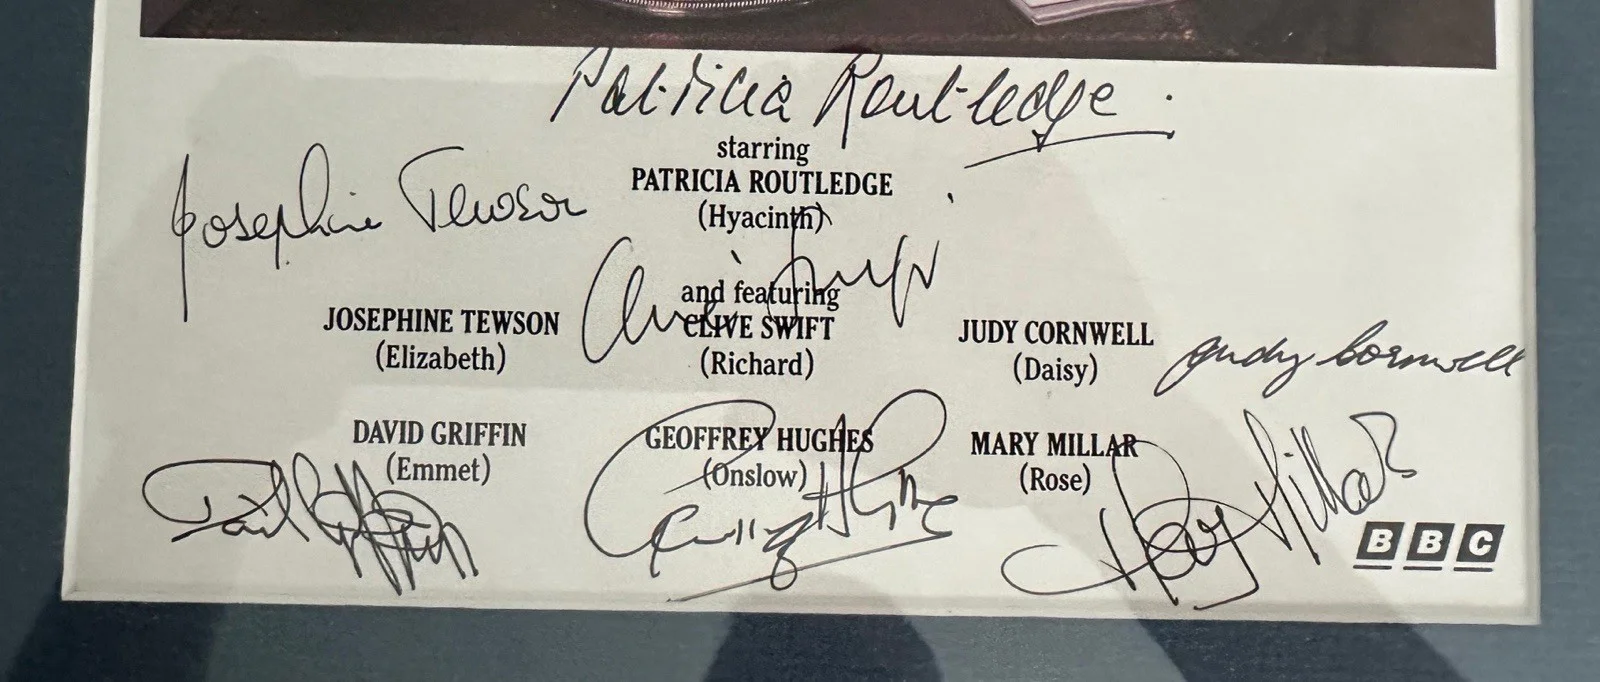 Patricia Routledge.
starring
PATRICIA ROUTLEDGE
(Hyacinth)
Josephine Tewson
and featuring
Clive Swift
JOSEPHINE TEWSON
(Elizabeth)
CLIVE SWIFT
(Richard)
JUDY CORNWELL
(Daisy)
Judy Cornwell
DAVID GRIFFIN
(Emmet)
David Griffin
GEOFFREY HUGHES
(Onslow)
Geoffrey Hughes
MARY MILLAR
(Rose)
Mary Millar
BBC